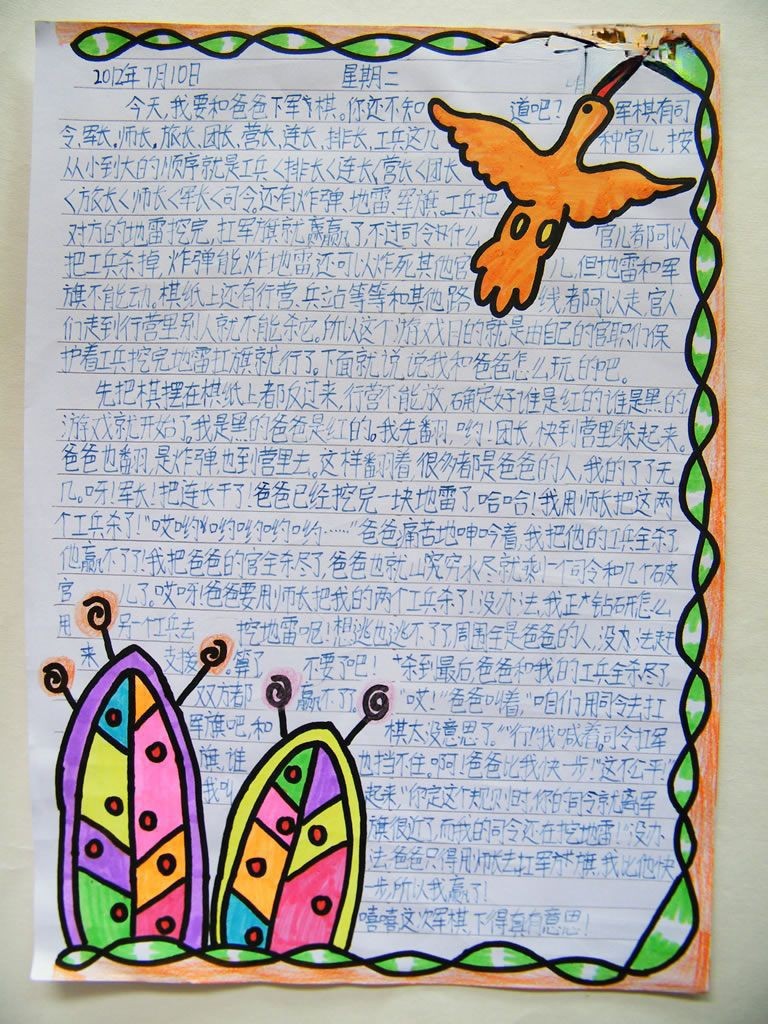 2012年7月10日 星期二
今天,我要和爸爸下军棋。你还不知道吧?军棋有司
令,军长,师长,旅长,团长,营长,连长,排长,工兵这几种官儿,按
从小到大的顺序就是工兵<排长<连长<营长<团长
<旅长<师长<军长<司令,还有炸弹,地雷,军旗。工兵把
对方的地雷挖完,扛军旗就赢了,不过司令和什么官儿都可以
把工兵杀掉,炸弹能炸地雷还可以炸死其他官儿,但地雷和军
旗不能动,棋纸上还有行营,兵站等等和其他路线都可以走,官
们走到行营里别人就不能杀它。所以这个游戏目的就是由自己的官职们保
护着工兵挖完地雷扛旗就行了。下面就说说我和爸爸怎么玩的吧。
先把棋摆在棋纸上都反过来,行营不能放,确定好谁是红的谁是黑的
游戏就开始了。我是黑的爸爸是红的。我先翻,哟!团长,快到营里躲起来。
爸爸也翻,是炸弹也到营里去。这样翻着很多都是爸爸的人,我的了了无
几。呀!军长!把连长干了!爸爸已经挖完一块地雷了,哈哈!我用师长把这两
个工兵杀了!"哎哟哟哟哟哟哟……"爸爸痛苦地呻吟着,我把他的工兵全杀了,
他赢不了了!我把爸爸的官全杀尽了,爸爸也就山穷水尽就剩一个司令和几个破
官儿了。哎呀!爸爸要用师长把我的两个工兵杀了!没办法,我正钻研怎么
用另一个工兵去挖地雷呢!想逃也逃不了了周围全是爸爸的人,没办法赶
来支援。算了不要了吧!杀到最后,爸爸和我的工兵全杀尽了,
双方都赢不了了。"哎!"爸爸叫着,"咱们用司令去扛
军旗吧,和棋太没意思了。""行!"我喊着。司令扛军
旗,谁也挡不住。啊!爸爸比我快一步!"这不公平!"
我叫起来"你定这个规则时,你的司令就离军
旗很近了,而我的司令还在挖地雷!"没办
法,爸爸只得用师长去扛军旗,我比他快
一步,所以我赢了!
嘻嘻这次军棋,下得真有意思!